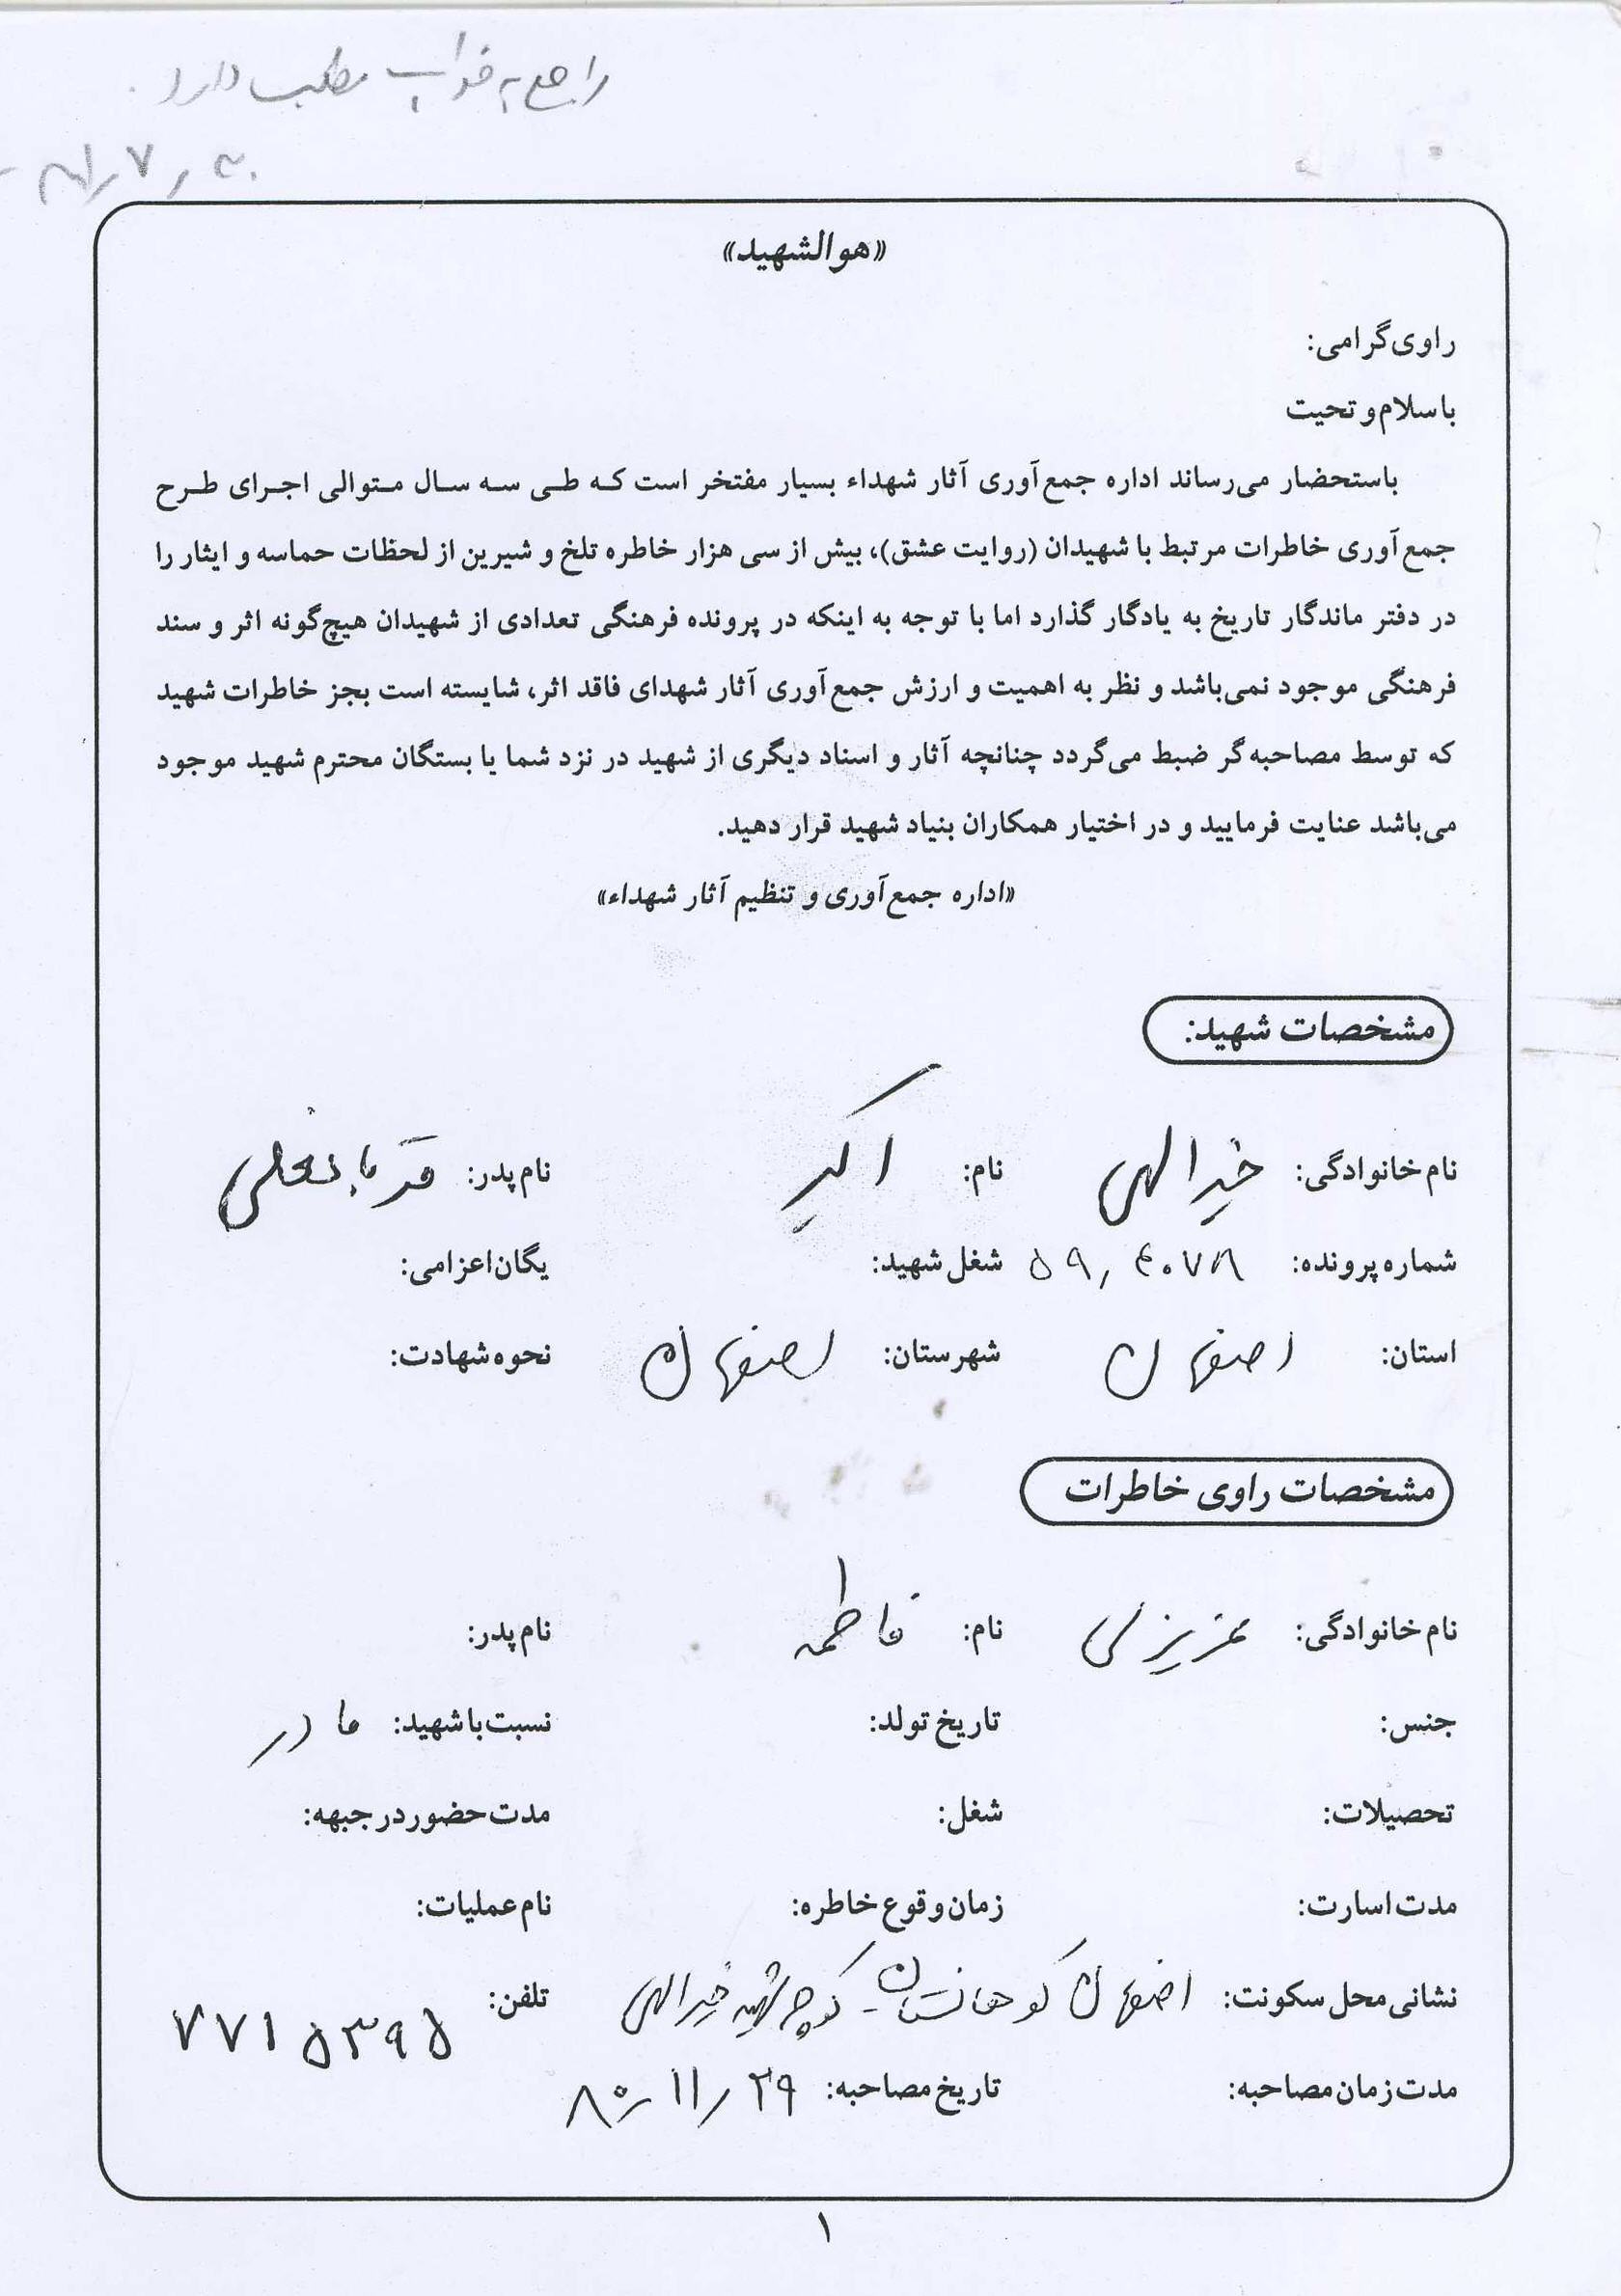 راجع به خواب مطلب دارد.
«هوالشهید»
راوی گرامی:
با سلام و تحیت
باستحضار می‌رساند اداره جمع‌آوری آثار شهداء بسیار مفتخر است که طی سه سال متوالی اجرای طرح
جمع‌آوری خاطرات مرتبط با شهیدان (روایت عشق)، بیش از سی هزار خاطره تلخ و شیرین از لحظات حماسه و ایثار را
در دفتر ماندگار تاریخ به یادگار گذارد اما با توجه به اینکه در پرونده فرهنگی تعدادی از شهیدان هیچ‌گونه اثر و سند
فرهنگی موجود نمی‌باشد و نظر به اهمیت و ارزش جمع‌آوری آثار شهدای فاقد اثر، شایسته است بجز خاطرات شهید
که توسط مصاحبه‌گر ضبط می‌گردد چنانچه آثار و اسناد دیگری از شهید در نزد شما یا بستگان محترم شهید موجود
می‌باشد عنایت فرمایید و در اختیار همکاران بنیاد شهید قرار دهید.
«اداره جمع‌آوری و تنظیم آثار شهداء»
مشخصات شهید:
نام خانوادگی: خیرالهی نام: اکبر نام پدر: قربانعلی
شماره پرونده: ۵۹٫۴۰۷۸ شغل شهید: یگان اعزامی:
استان: اصفهان شهرستان: اصفهان نحوه شهادت:
مشخصات راوی خاطرات
نام خانوادگی: عزیزی نام: فاطمه نام پدر:
جنس: تاریخ تولد: نسبت با شهید: مادر
تحصیلات: شغل: مدت حضور در جبهه:
مدت اسارت: زمان وقوع خاطره: نام عملیات:
نشانی محل سکونت: اصفهان کوهانستان - کوچه شهید خیرالهی تلفن: ۷۷۱۵۳۹۵
مدت زمان مصاحبه: تاریخ مصاحبه: ۸۰/۱۱/۲۹
۱